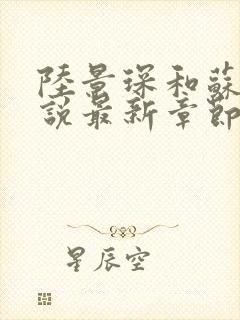 陸景琛和蘇
說最新章節
星辰空